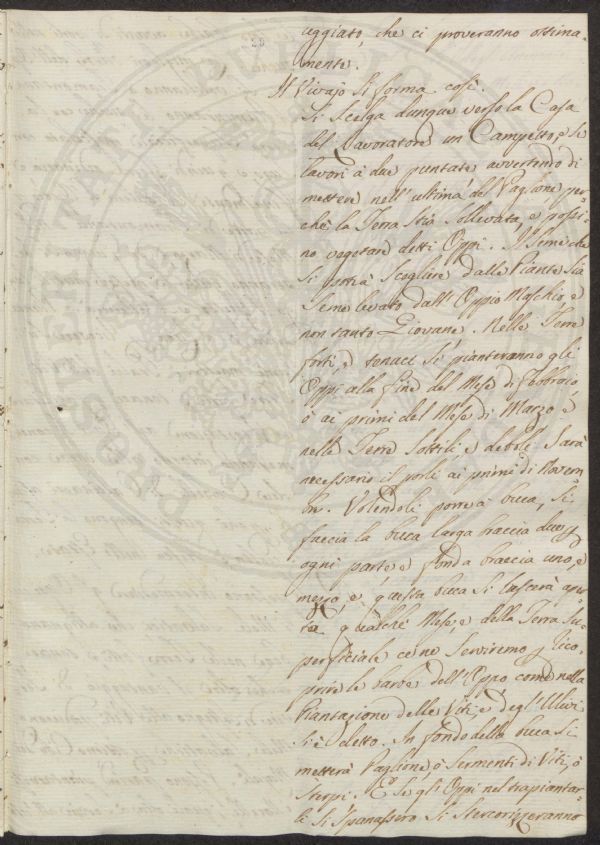 uggiato, che ci proveranno ottima-
mente.
Il Vivajo si forma così.
Si scelga dunque verso la Casa
del Lavoratore un Campetto, si
lavori à due puntate, avvertendo di
mettere nell'ultima del Paglione per-
chè la Terra stia sollevata, e possi-
no vegetare detti Oppi. Il Seme che
si potrà scegliere dalle Piante sia
Seme levato dall'Oppio Maschio, e
non tanto Giovane. Nelle Terre
forti, e tenaci si pianteranno gli
Oppi alla fine del Mese di Febbraio,
ò ai primi del Mese di Marzo, e
nelle Terre sottili, e deboli sarà
necessario il porli ai primi di Novem-
bre. Volendoli porre à buca, si
faccia la buca larga braccia due p
ogni parte e fonda braccia uno, e
mezzo, e questa buca si lascerà aper-
ta qualche Mese, e della Terra su-
perficiale ce ne serviremo p rico-
prire le barbe dell'Oppio come nella
Piantazione delle Viti, e degl'Ulivi
si è detto. In fondo della buca si
metterà Paglione, ò Sermenti di Viti, ò
Sterpi. E se gli Oppi nel trapiantar-
li si spanassero si stercorizzeranno
PROSPERITATI PUBLICAE